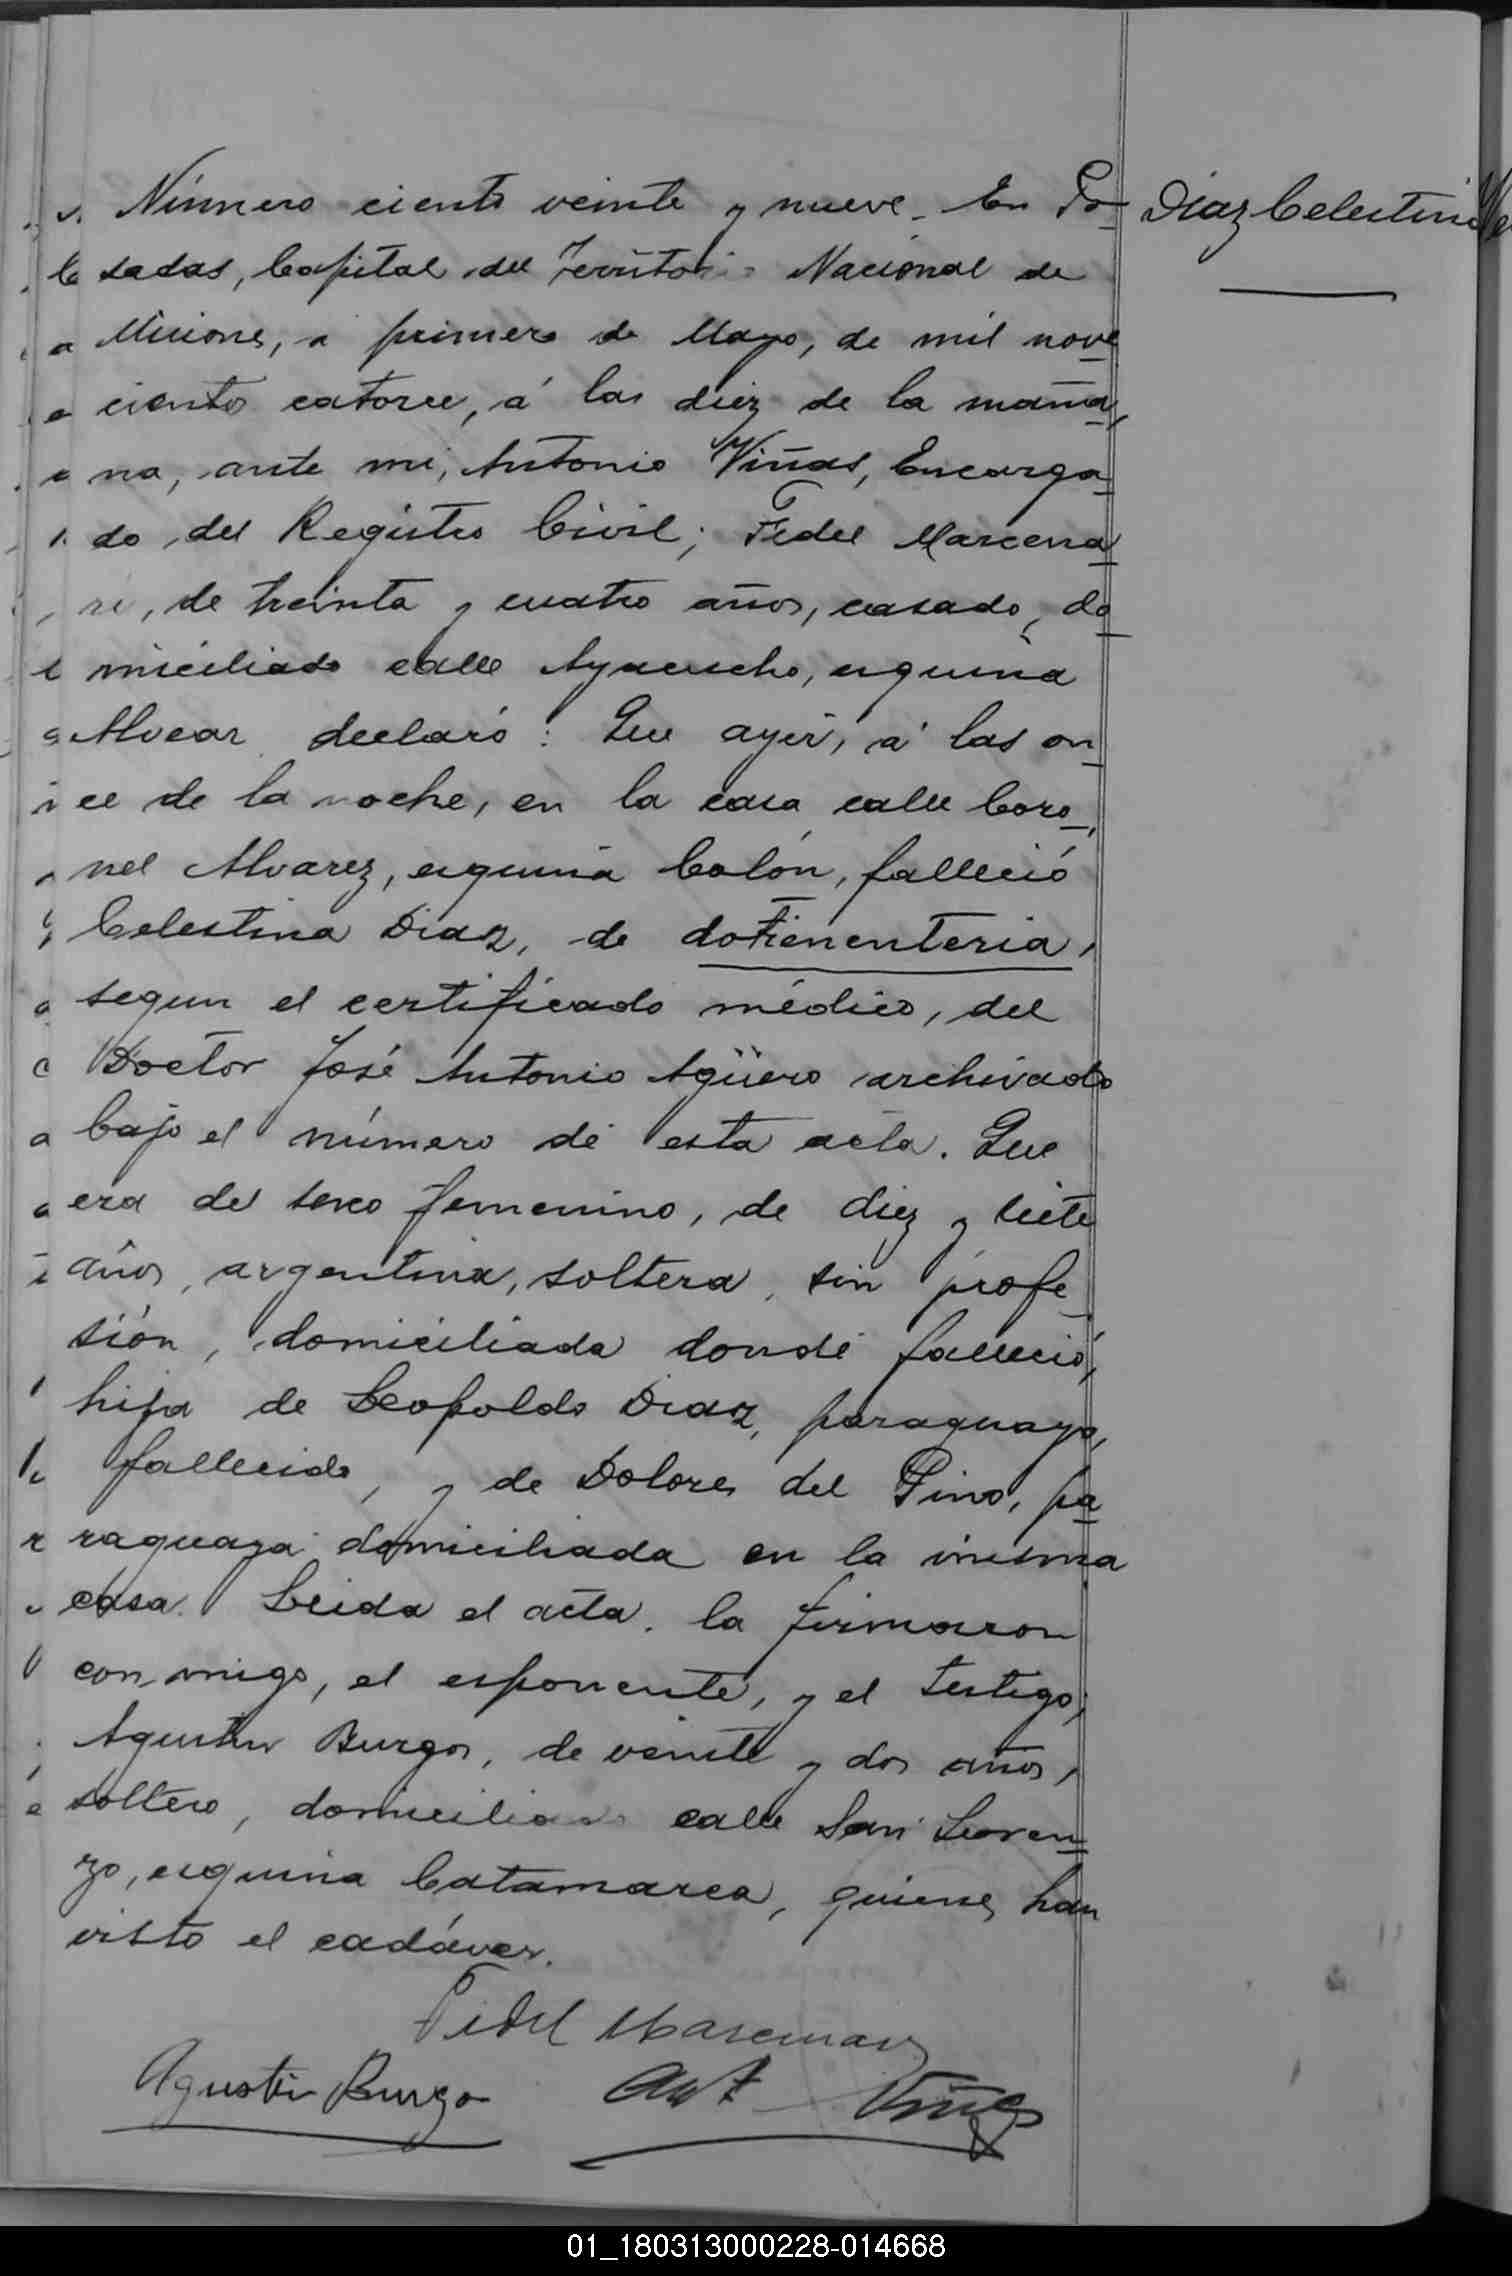 Número ciento veinte y nueve. En Po-
sadas, Capital del Territorio Nacional de
Misiones, a primero de Mayo, de mil nove
cientos catorce, á las diez de la maña-
na, ante mi, Antonio Viñas, Encarga-
do del Registro Civil; Fidel Marcena-
ri, de treinta y cuatro años, casado, do-
miciliado calle Ayacucho, esquina
Alvear declaró: Que ayer, á las on-
ce de la noche, en la casa calle Coro-
nel Alvarez, esquina Colón, falleció
Celestina Diaz, de dotienenteria,
segun el certificado médico, del
Doctor José Antonio Agüero archivado
bajo el número de esta acta. Que
era de sexo femenino, de diez y siete
años, argentina, soltera, sin profe-
sión, domiciliada donde falleció,
hija de Leopoldo Diaz, paraguayo,
fallecido, y de Dolores del Pino, pa-
raguaya domiciliada en la misma
casa. Leida el acta, la firmaron
conmigo, el esponente, y el testigo,
Agustin Burgos, de veinte y dos años,
soltero, domiciliado calle San Loren-
zo, esquina Catamarca, quienes han
visto el cadáver.
Fidel Marcenari
Agustin Burgo Ant Viñas
Diaz Celestina
01_180313000228-014668